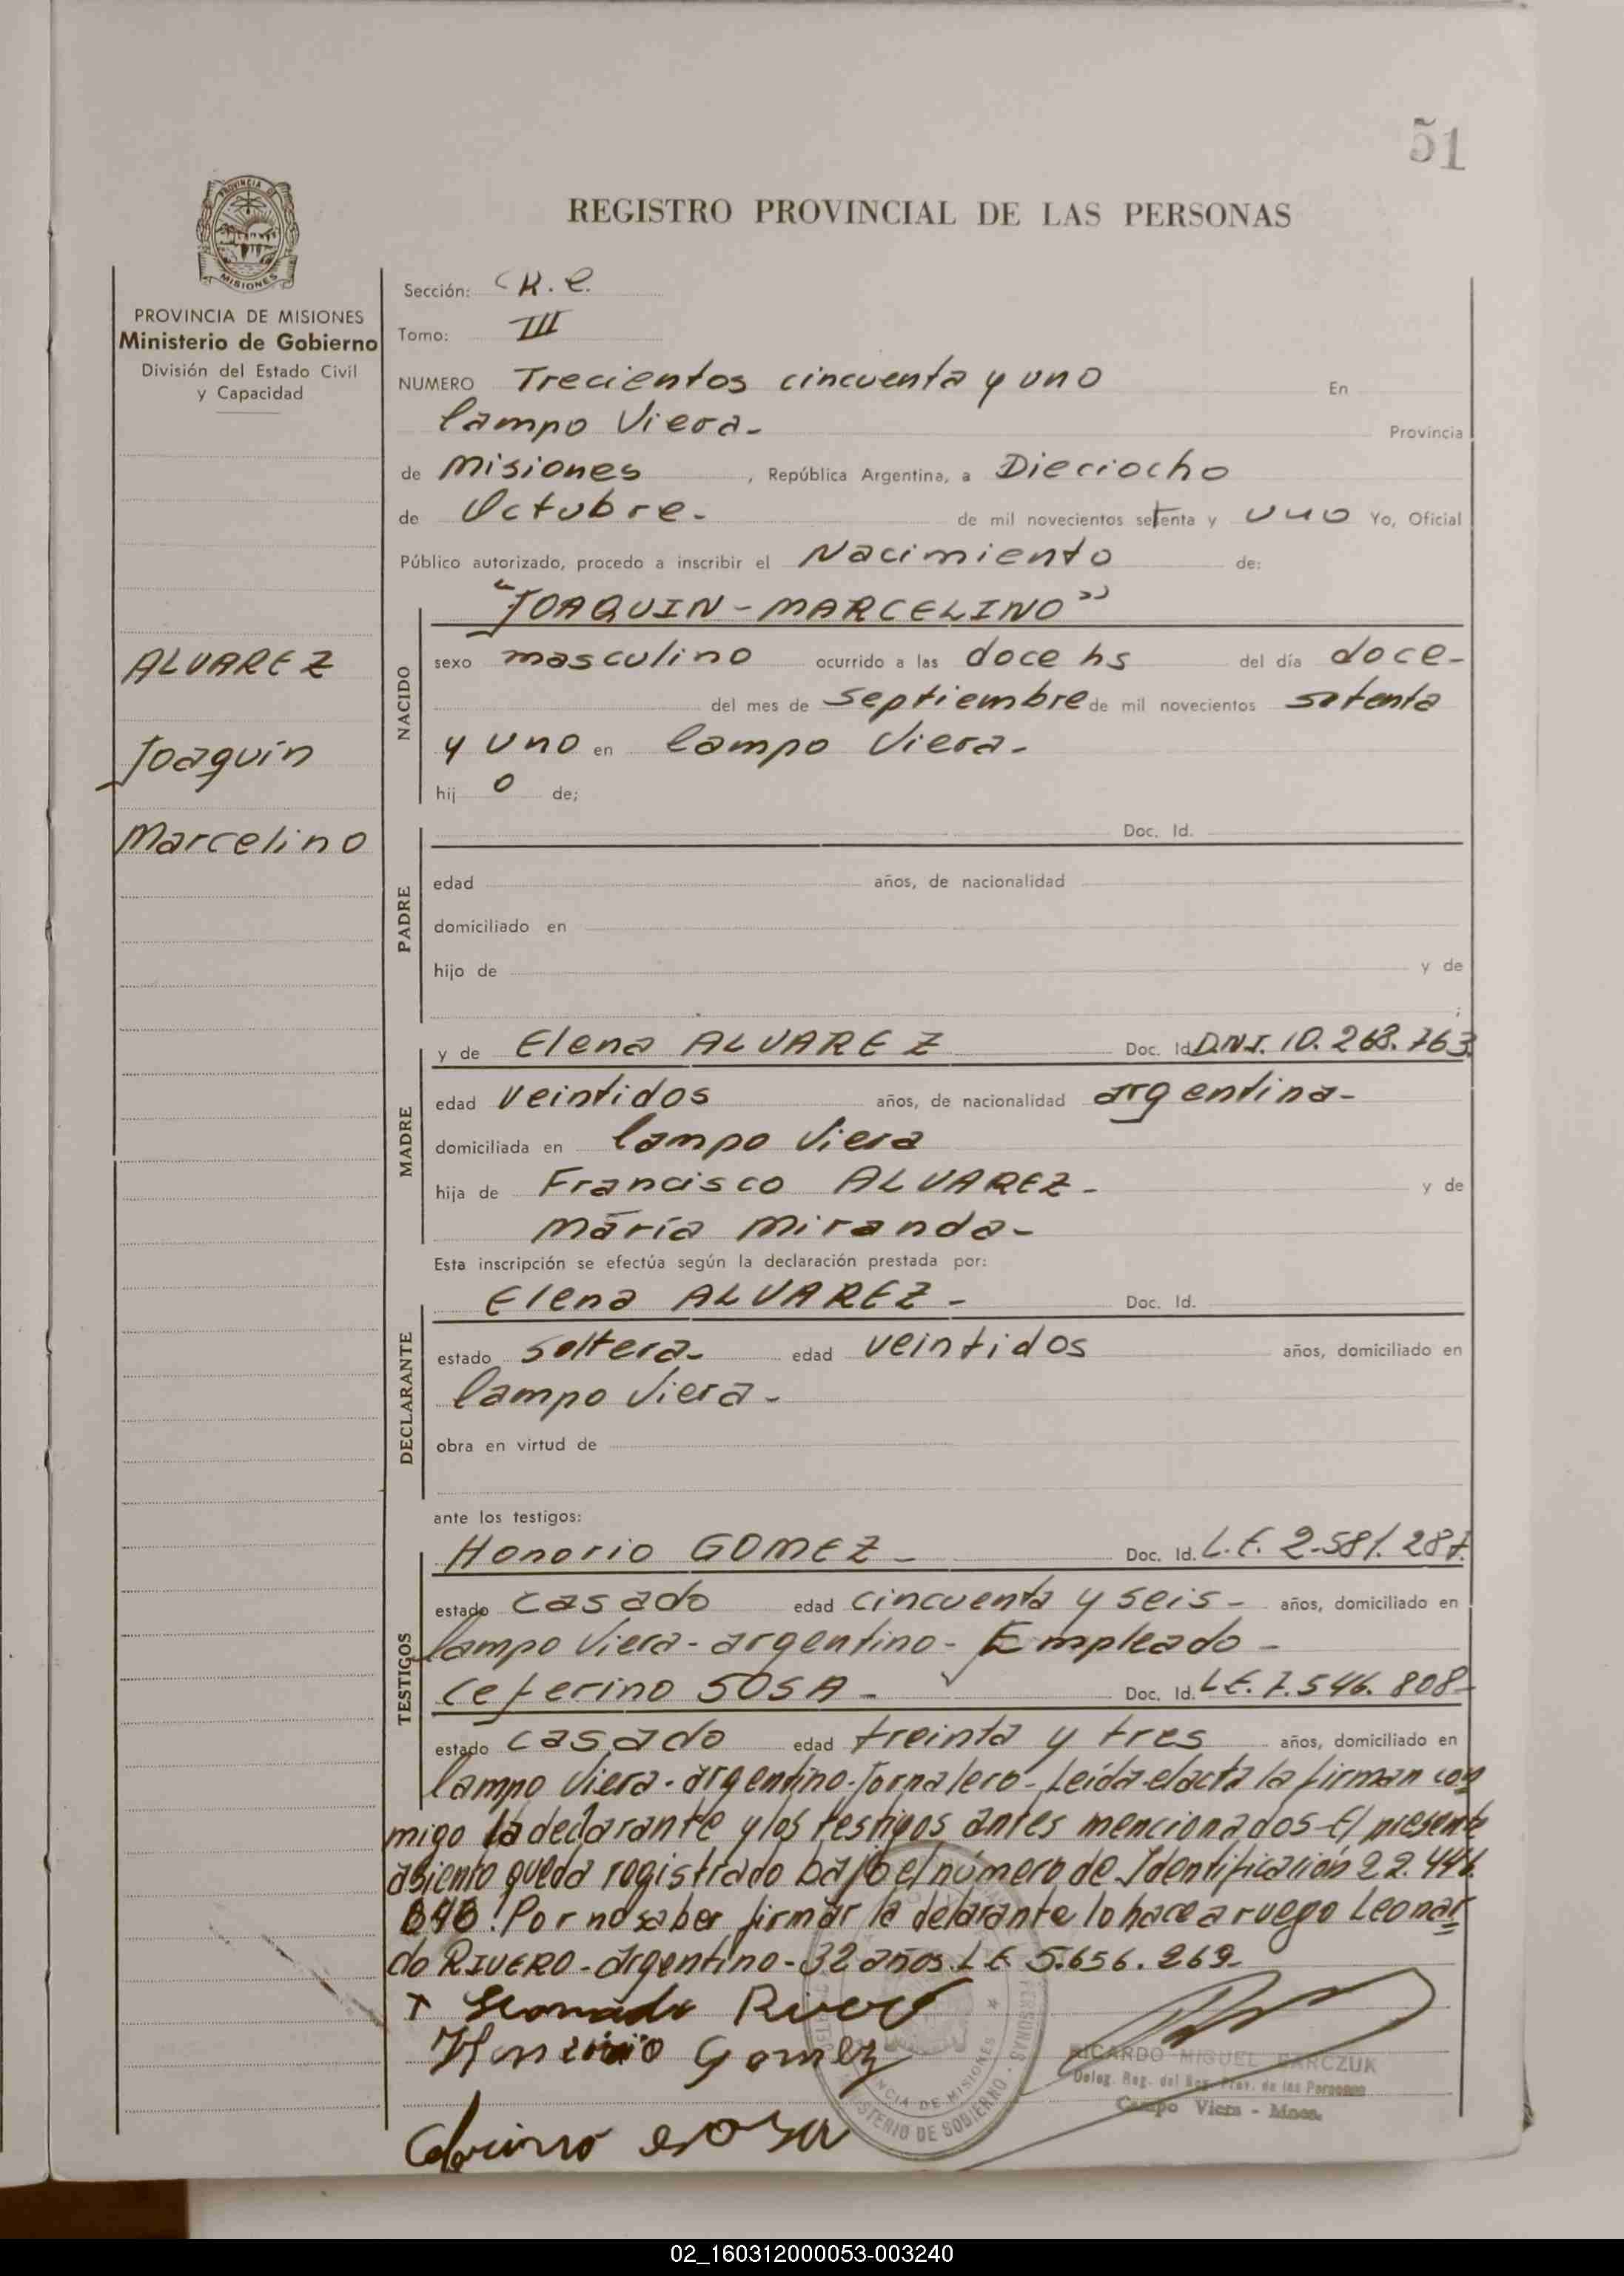 51
REGISTRO PROVINCIAL DE LAS PERSONAS
PROVINCIA DE
MISIONES
PROVINCIA DE MISIONES
Ministerio de Gobierno
División del Estado Civil
y Capacidad
ALVAREZ
Joaquín
Marcelino
Sección: R. C.
Tomo: III
NUMERO Trecientos cincuenta y uno En
Campo Viera- Provincia
de Misiones , República Argentina, a Dieciocho
de Octubre- de mil novecientos setenta y uno Yo, Oficial
Público autorizado, procedo a inscribir el Nacimiento de:
"JOAQUIN-MARCELINO"
NACIDO
sexo masculino ocurrido a las doce hs del día doce-
del mes de septiembre de mil novecientos setenta
y uno en Campo Viera-
hij o de;
PADRE
Doc. Id.
edad años, de nacionalidad
domiciliado en
hijo de y de
;
MADRE
y de Elena ALVAREZ Doc. Id. D.N.I. 10.268.763
edad veintidos años, de nacionalidad argentina-
domiciliada en Campo Viera
hija de Francisco ALVAREZ- y de
María Miranda-
Esta inscripción se efectúa según la declaración prestada por:
DECLARANTE
Elena ALVAREZ- Doc. Id.
estado soltera- edad veintidos años, domiciliado en
Campo Viera-
obra en virtud de
ante los testigos:
TESTIGOS
Honorio GOMEZ- Doc. Id. L.E. 2.581.287.
estado casado edad cincuenta y seis- años, domiciliado en
Campo Viera-argentino-Empleado-
Ceferino SOSA- Doc. Id. L.E. 7.546.808-
estado casado edad treinta y tres años, domiciliado en
Campo Viera-argentino-Jornalero-Leída el acta la firman con
migo la declarante y los testigos antes mencionados-El presente
asiento queda registrado bajo el número de Identificación 22.446.
Por no saber firmar la delarante lo hace a ruego Leonar
do RIVERO-argentino-32 años. LE 5.656.269-
Leonardo Rivero
Honorio Gomez
Ceferino Sosa
PROVINCIA DE MISIONES
MINISTERIO DE GOBIERNO
RICARDO MIGUEL BARCZUK
Deleg. Reg. del Reg. Prov. de las Personas
Campo Viera - Mnes.
02_160312000053-003240